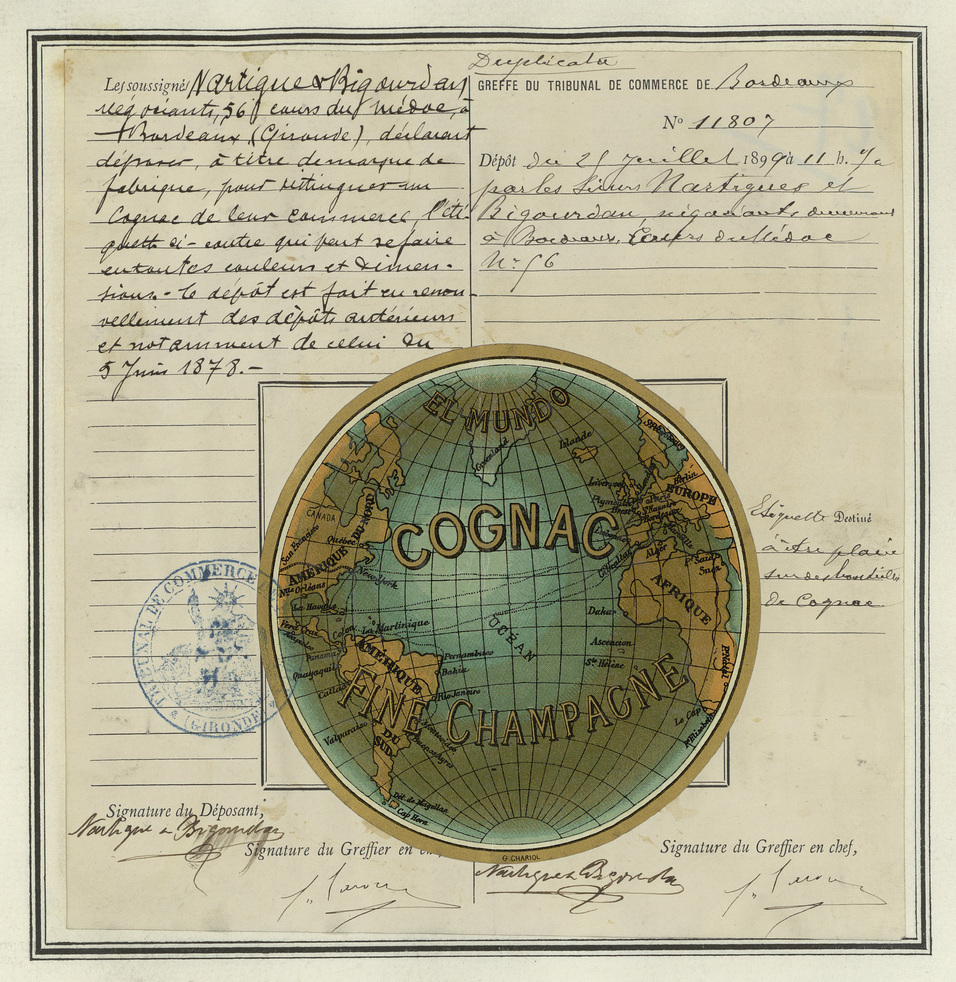 Les soussignés Nartigue & Bigourdan
négociants, 56 cours du Médoc, à
Bordeaux (Gironde), déclarent
déposer, à titre de marque de
fabrique, pour distinguer un
Cognac de leur commerce, l'éti-
quette ci-contre qui peut se faire
en toutes couleurs et dimen-
sions.- Le dépôt est fait en renou-
vellement des dépôts antérieurs
et notamment de celui du
5 Juin 1878.-
Duplicata
GREFFE DU TRIBUNAL DE COMMERCE DE Bordeaux
No 11807
Dépôt du 25 Juillet 1899 à 11 h. 1/2
par les Sieurs Nartigues et
Bigourdan, négociants, demeurant
à Bordeaux, Cours du Médoc
No 56
EL MUNDO
COGNAC
FINE CHAMPAGNE
Groenland
Islande
CANADA
AMÉRIQUE DU NORD
San Francisco
Québec
New-York
Nlle Orléans
La Havane
Vera Cruz
Colon
La Martinique
Panama
Guayaquil
Callao
AMÉRIQUE DU SUD
Pernambuco
Bahia
Rio Janeiro
Valparaiso
Montevideo
Buenos Ayres
Dét. de Magellan
Cap Horn
OCÉAN
Liverpool
Plymouth
Brest
St Nazaire
Bordeaux
Berlin
EUROPE
Gibraltar
Alger
Pt Saïd
Suez
AFRIQUE
Dakar
Ascencion
Ste Hélène
Pt Natal
Le Cap
Pt Elisabeth
G. CHARIOL
Etiquette Destiné
à être placée
sur des bouteilles
de Cognac
TRIBUNAL DE COMMERCE
(GIRONDE)
Signature du Déposant,
Nartigue & Bigourdan
Signature du Greffier en chef,
Nartigue & Bigourdan
Signature du Greffier en chef,